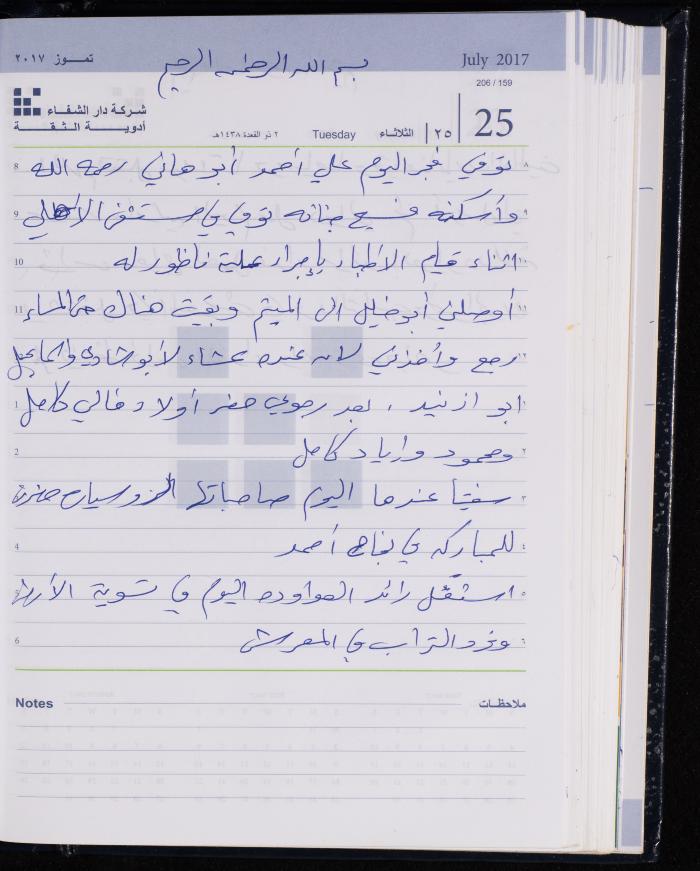 تمـوز ٢٠١٧
July 2017
بسم الله الرحمن الرحيم
206 / 159
شركة دار الشفاء
أدويـــة الـثـقـة
25
٢٥
الثلاثاء
Tuesday
٢ ذو القعدة ١٤٣٨هـ
٨ توفي فجر اليوم علي أحمد أبو هاني رحمه الله 8
وأسكنه فسيح جنانه توفي في مستشفى الأهلي 9
١٠ اثناء قيام الأطباء بإجراء عملية ناظور له 10
١١ أوصلني أبو خليل الى الميتم وبقيت هناك حتى المساء 11
١٢ رجع وأخذني لانه عنده عشاء لأبو شادي
١ ابو ازنيد ، بعد رجوعي حضر أولاد خالي كامل 1
٢ ومحمود وازياد كامل 2
سفيتا عندما اليوم صاحباتها
٤ للمباركة في نجاح أحمد 4
٥ استقل رائد العواوده اليوم في تسوية الأرض 5
٦ وفرد التراب في المعرش 6
Notes
ملاحظات